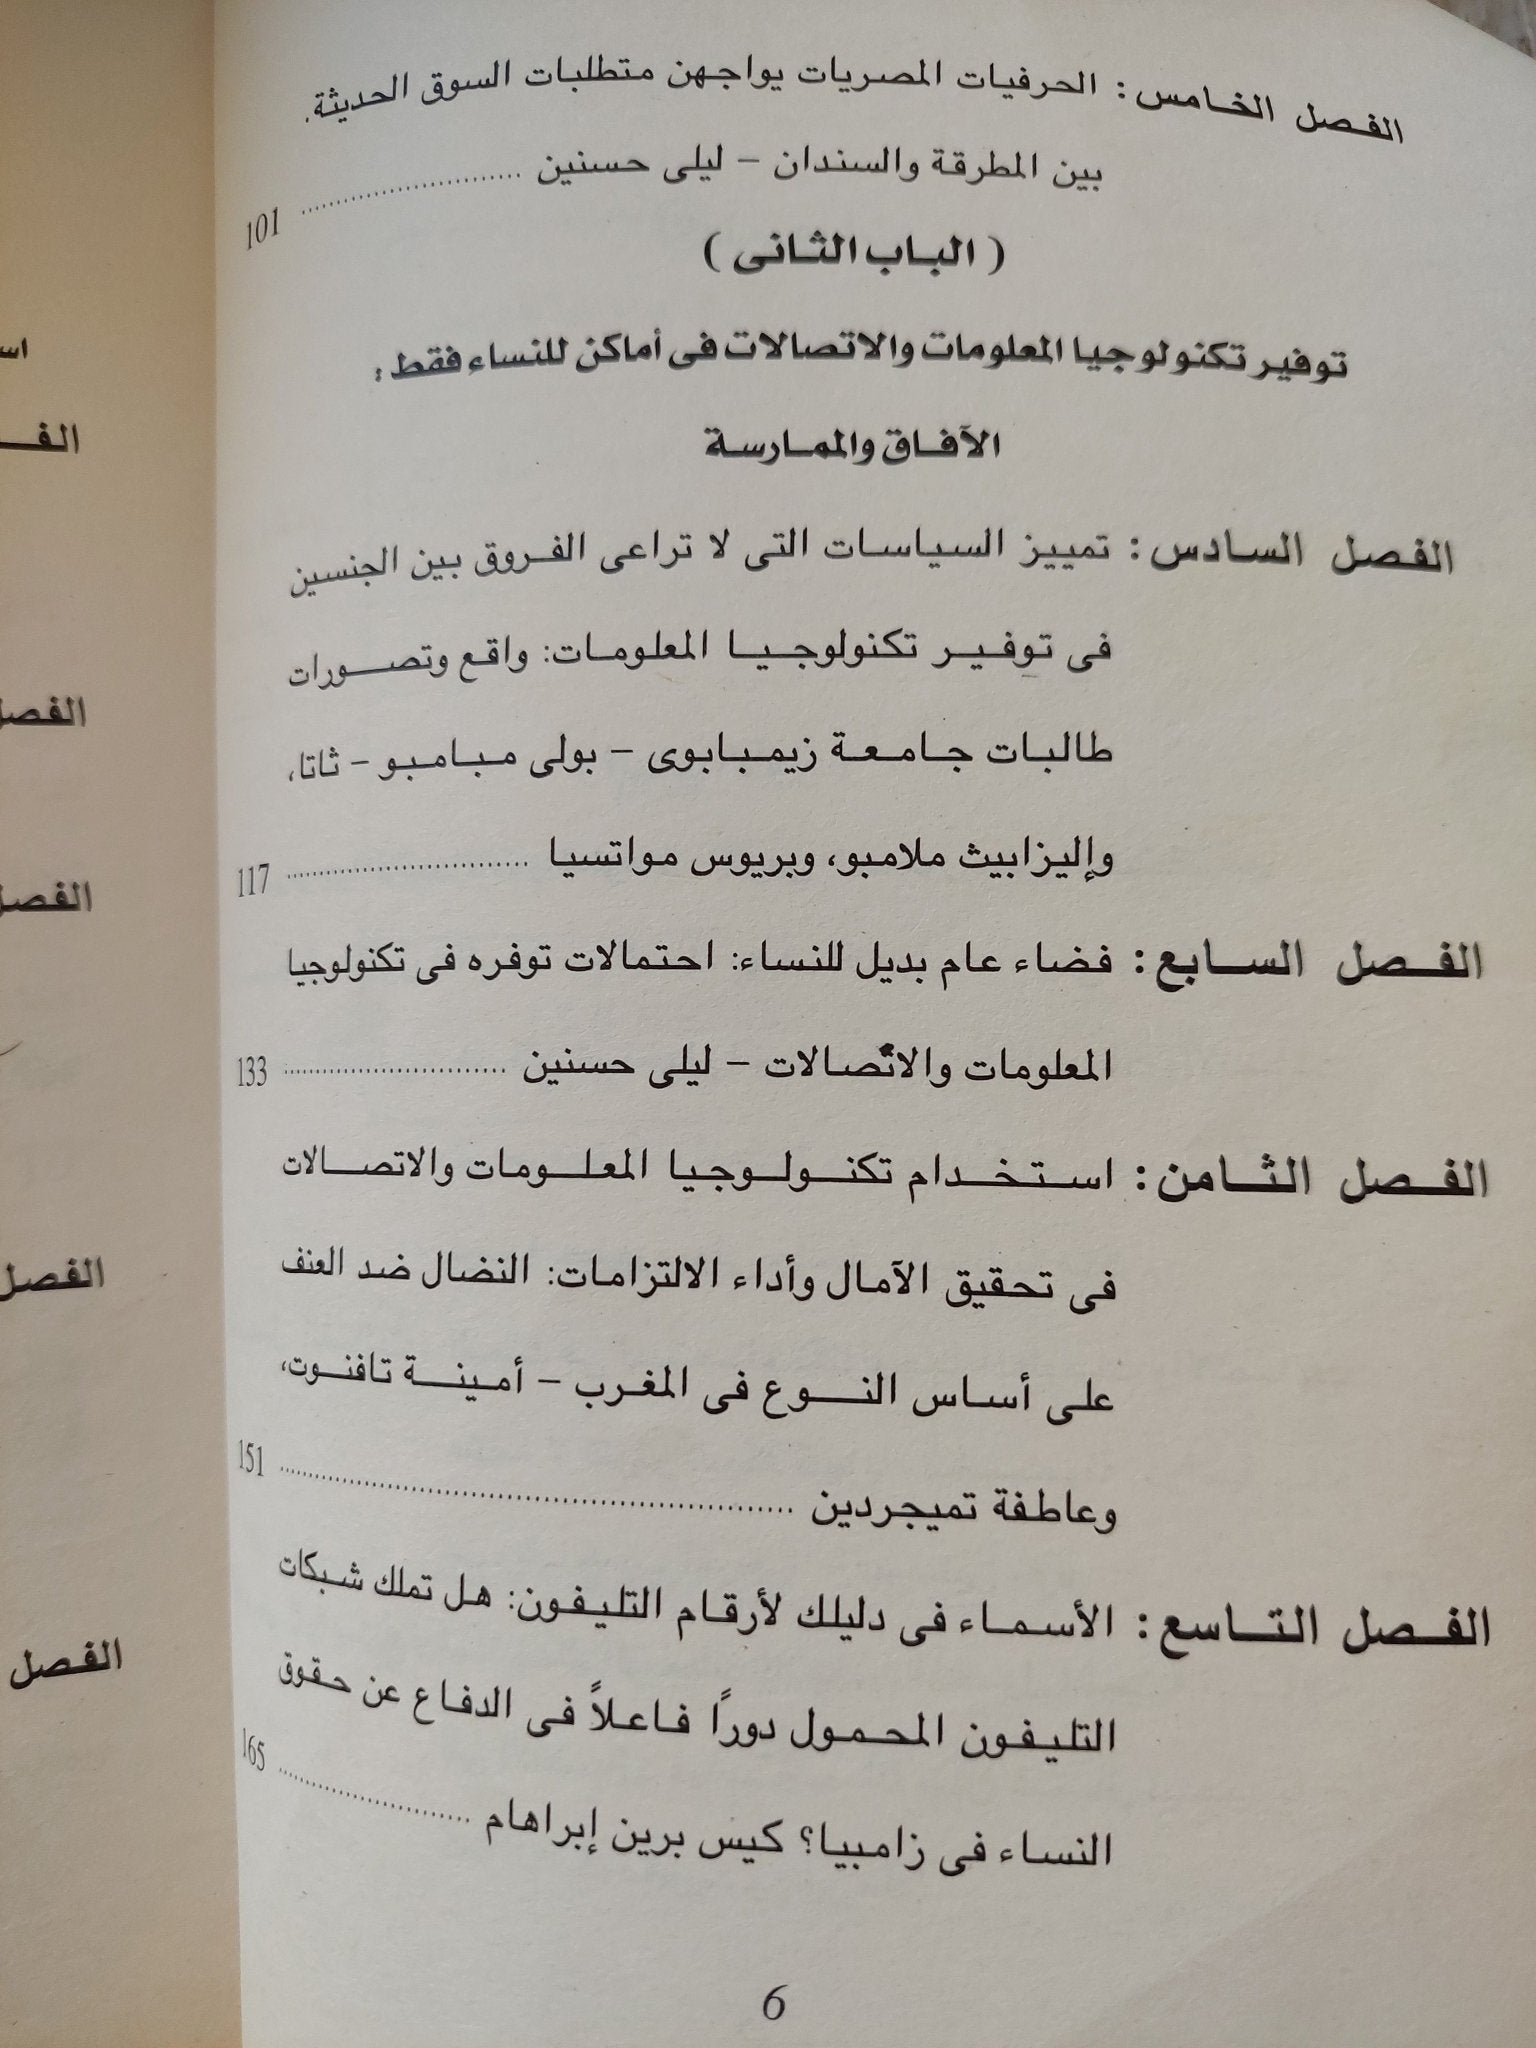 الفصل الخامس: الحرفيات المصريات يواجهن متطلبات السوق الحديثة.
بين المطرقة والسندان – ليلى حسنين ........................ 101
( الباب الثانى )
توفير تكنولوجيا المعلومات والاتصالات فى أماكن للنساء فقط:
الآفاق والممارسة
الفصل السادس: تمييز السياسات التى لا تراعى الفروق بين الجنسين
فى توفير تكنولوجيا المعلومات: واقع وتصورات
طالبات جامعة زيمبابوى – بولى مبامبو – ثاتا،
وإليزابيث ملامبو، وبريوس مواتسيا ........................ 117
الفصل السابع: فضاء عام بديل للنساء: احتمالات توفره فى تكنولوجيا
المعلومات والاتصالات – ليلى حسنين ........................ 133
الفصل الثامن: استخدام تكنولوجيا المعلومات والاتصالات
فى تحقيق الآمال وأداء الالتزامات: النضال ضد العنف
على أساس النوع فى المغرب – أمينة تافنوت،
وعاطفة تميجردين ........................ 151
الفصل التاسع: الأسماء فى دليلك لأرقام التليفون: هل تملك شبكات
التليفون المحمول دورًا فاعلاً فى الدفاع عن حقوق
النساء فى زامبيا؟ كيس برين إبراهام ........................ 165
6
الفصل
الفصل
الفصل
الفصل